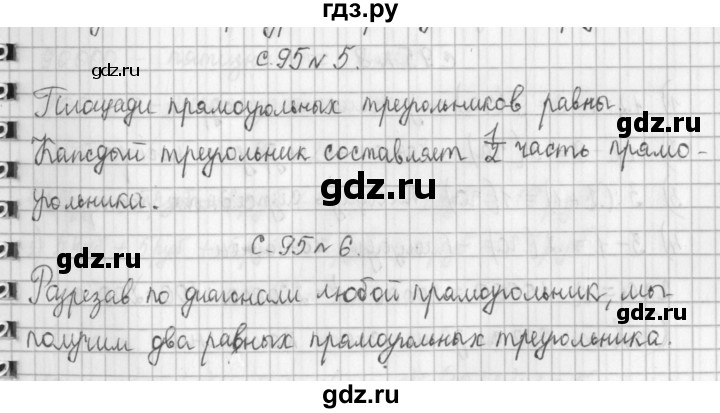 гдз.ру
с.95 № 5.
gdz.ru
Площади прямоугольных треугольников равны.
gdz.ru
Каждый треугольник составляет 1/2 часть прямо-
gdz.ru
угольника.
с.95 № 6.
gdz.ru
Разрезав по диагонали любой прямоугольник, мы
gdz.ru
получим два равных прямоугольных треугольника.
gdz.ru